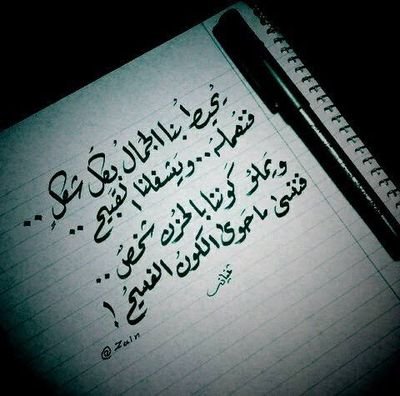 يُحيطُ بُنا الجَمالُ بُكلُ شَكلٍ ..
فننهملهُ .. ويَشغلنا القَبيحُ ..
ويَملؤ كَوننا بالحُزن شخصٌ ..
فننسى ما حوىٰ الكونُ الفسيحُ !
غياث
@ Zain